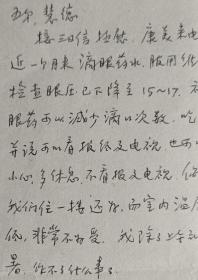 慧德
接三日信 康美来电
近一个月来滴眼药水，服用维
检查眼压已下降至15~17.
眼药可以减少滴的次数，吃
并说可以看报纸及电视，也可
小心，多休息，不看报及电视，
我们住一楼还好，而室内温
低，非常不好受。我除了上午
暑，作不了什么事。